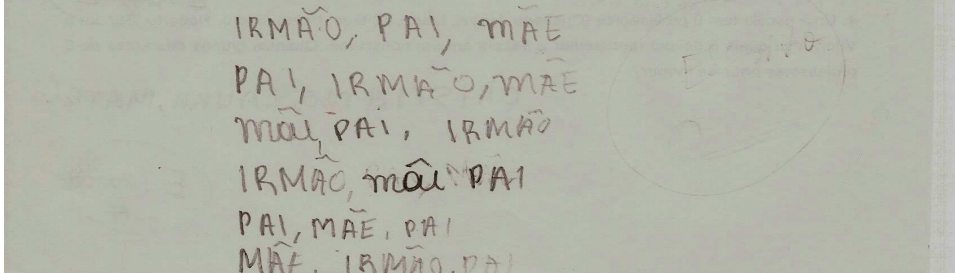 IRMÃO, PAI, MÃE
PAI, IRMÃO, MÃE
mãe, PAI, IRMÃO
IRMÃO, mãe PAI
PAI, MÃE, PAI
MÃE, IRMÃO, PAI